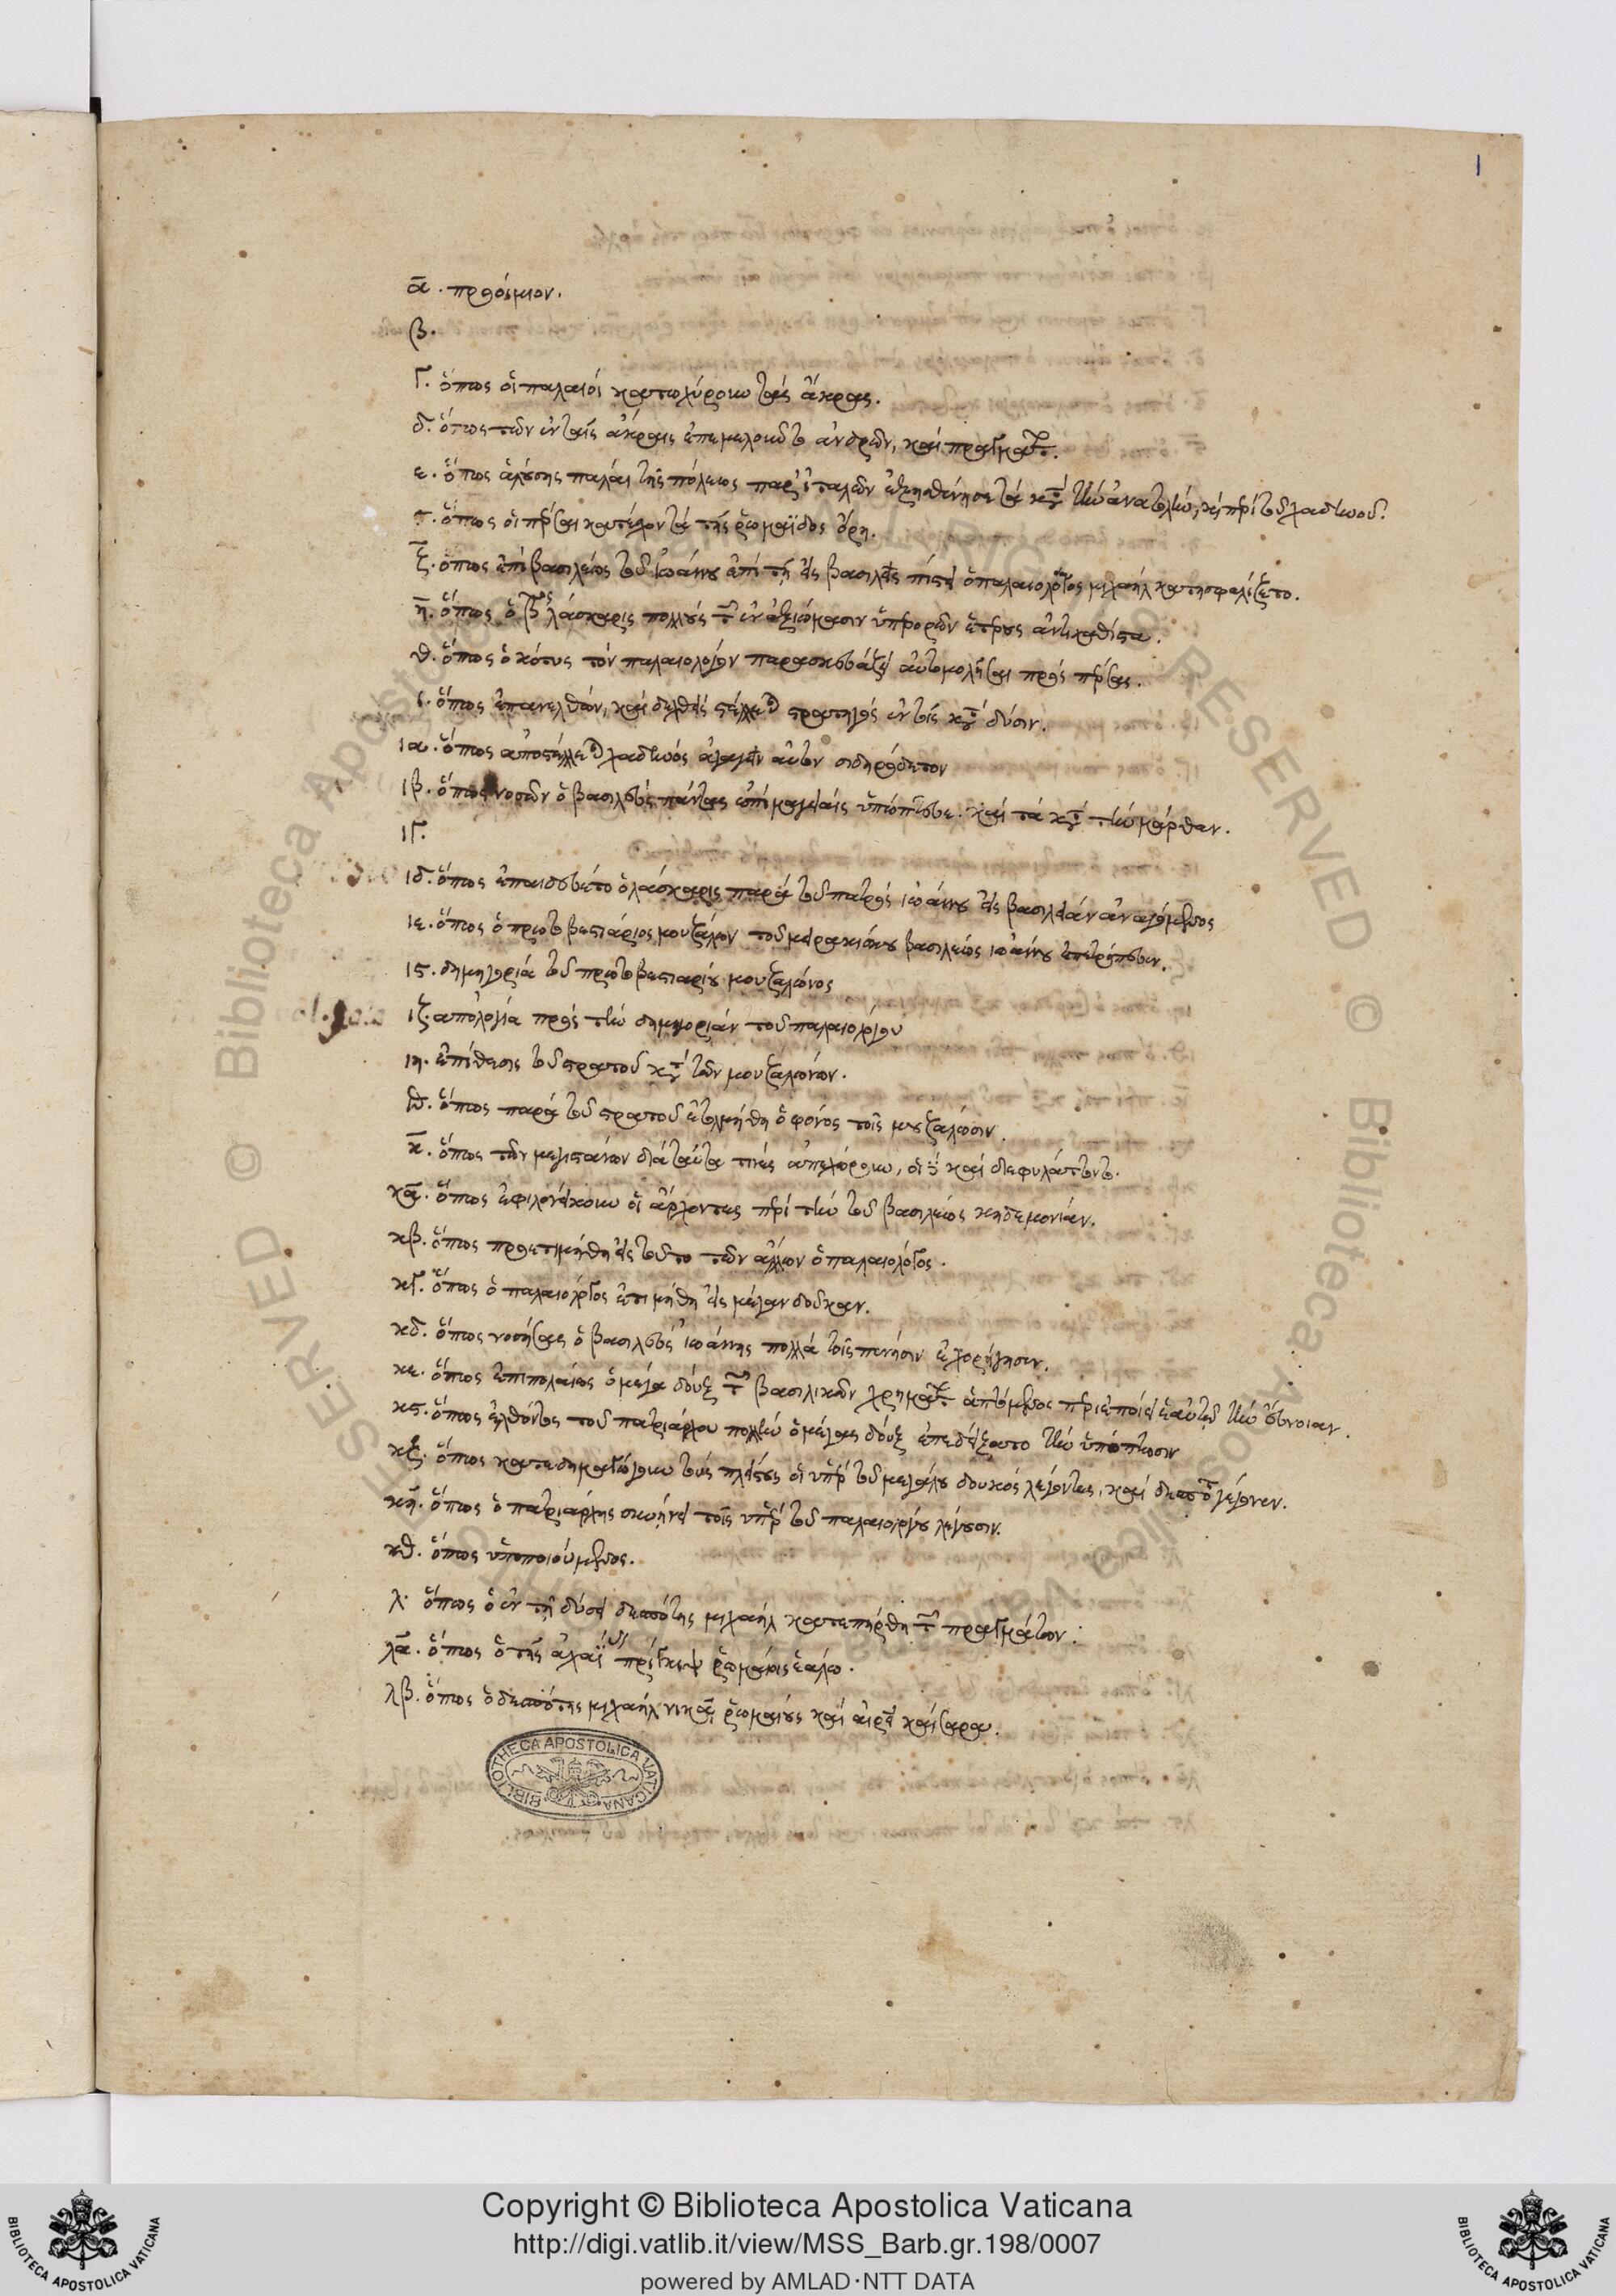 1
ᾱ. προοίμιον.
β.
γ. ὅπως οἱ παλαιοί κατωχύρουν τάς ἄκρας.
δ. ὅπως τῶν ἐν ταῖς ἄκραις ἐπεμελοῦντο ἀνδρῶν, καί πραγμάτ.
ε. ὅπως ἁλούσης παλαι τῆς πόλεως παρ' ἰταλῶν τά κατά τήν ἀνατολήν, καί περί τοῦ χαδηνοῦ.
ς. ὅπως οἱ πέρσαι κατέσχον τά τῆς ῥωμαΐδος ὄρη.
ζ. ὅπως ἐπί βασιλέως τοῦ ἰωάννου ἐπί τῇ εἰς βασιλεῖς πίστει ὁ παλαιολόγος μιχαήλ κατησφαλίζετο.
η. ὅπως ὁ λάσκαρις πολλούς τῶν ἐν ἀξιώμασιν ὑπερορῶν ἑτέρους ἀντικαθίστα.
θ. ὅπως ὁ κότυς τόν παλαιολόγον παρασκευάζει αὐτομολῆσαι πρός πέρσας.
ι. ὅπως ἐπανελθών, καί δεχθείς στέλλεται στρατηγός ἐν τοῖς κατά δύσιν.
ια. ὅπως ἀποστέλλεται χαδηνός ἀγαγεῖν αὐτόν σιδηρόδετον
ιβ. ὅπως νοσῶν ὁ βασιλεύς πάντας ἐπί μαγείαις ὑπώπτευε. καί τά κατά τήν μάρθαν.
ιγ.
ιδ. ὅπως ἐπαιδεύετο ὁ λάσκαρις παρά τοῦ πατρός ἰωάννου εἰς βασιλείαν ἀναγόμενος
ιε. ὅπως ὁ πρωτοβεστιάριος μουζάλων τοῦ μειρακίου βασιλέως ἰωάννου ἐπετρόπευεν.
ις. δημηγορία τοῦ πρωτοβεστιαρίου μουζάλωνος
ιζ. απολογία πρός τήν δημηγορίαν τοῦ παλαιολόγου
ιη. ἐπίθεσις τοῦ στρατοῦ κατά τῶν μουζαλώνων.
ιθ. ὅπως παρά τοῦ στρατοῦ ἐτολμήθη ὁ φόνος τοῖς μουζάλωσιν.
κ. ὅπως τῶν μεγιστάνων διά ταῦτα τινές ἀπεχώρουν, οἱ δέ καί διεφυλάττοντο.
κα. ὅπως ἐφιλονείκουν οἱ ἄρχοντες περί τήν τοῦ βασιλέως κηδεμονίαν.
κβ. ὅπως προετιμήθη εἰς τοῦτο τῶν ἄλλων ὁ παλαιολόγος.
κγ. ὅπως ὁ παλαιολόγος ἐτιμήθη εἰς μέγαν δοῦκαν.
κδ. ὅπως νοσήσας ὁ βασιλεύς ἰωάννης πολλά τοῖς πένησιν ἐχορήγησεν.
κε. ὅπως ἐπιπολαίως ὁ μέγα δούξ τῶν βασιλικῶν χρημάτ. ἁπτόμενος περιεποιεῖ ἑαυτῷ τήν εὔνοιαν.
κς. ὅπως ἐλθόντος τοῦ πατριάρχου πολλήν ὁ μέγας δούξ ἐπεδείξατο τήν ὑπόπτωσιν
κζ. ὅπως κατεδημαγώγουν τούς πλείστους οἱ ὑπέρ τοῦ μεγάλου δουκός λέγοντες, καί δεσπότης γέγονεν.
κη. ὅπως ὁ πατριάρχης συνῄνει τοῖς ὑπέρ τοῦ παλαιολόγου λέγουσιν.
κθ. ὅπως ὑποποιούμενος.
λ. ὅπως ὁ ἐν τῇ δύσει δεσπότης μιχαήλ κατεπήρθη τῶν πραγμάτων.
λα. ὅπως ὁ τῆς ἀχαΐας πρίγκιψ ῥωμαίοις ἑάλω.
λβ. ὅπως ὁ δεσπότης μιχαήλ νικᾷ ῥωμαίους καί αἱρεῖ καίσαρα.
BIBLIOTHECA APOSTOLICA VATICANA
Copyright © Biblioteca Apostolica Vaticana
http://digi.vatlib.it/view/MSS_Barb.gr.198/0007
powered by AMLAD·NTT DATA